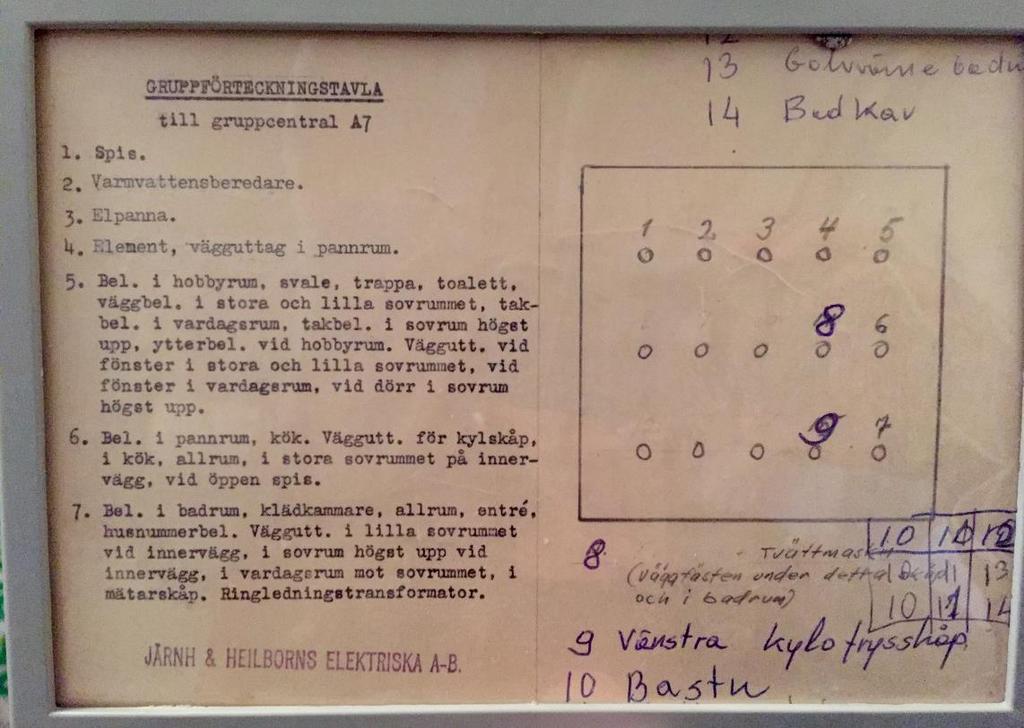 GRUPPFÖRTECKNINGSTAVLA
till gruppcentral A7
1. Spis.
2. Varmvattensberedare.
3. Elpanna.
4. Element, vägguttag i pannrum.
5. Bel. i hobbyrum, svale, trappa, toalett,
väggbel. i stora och lilla sovrummet, tak-
bel. i vardagsrum, takbel. i sovrum högst
upp, ytterbel. vid hobbyrum. Väggutt. vid
fönster i stora och lilla sovrummet, vid
fönster i vardagsrum, vid dörr i sovrum
högst upp.
6. Bel. i pannrum, kök. Väggutt. för kylskåp,
i kök, allrum, i stora sovrummet på inner-
vägg, vid öppen spis.
7. Bel. i badrum, klädkammare, allrum, entré,
husnummerbel. Väggutt. i lilla sovrummet
vid innervägg, i sovrum högst upp vid
innervägg, i vardagsrum mot sovrummet, i
mätarskåp. Ringledningstransformator.
JÄRNH & HEILBORNS ELEKTRISKA A-B.
12
13 Golvvärme badru
14
1 2 3 4 5
8 6
9 7
10 11 12
8 Tvättmask
(Väggfästen under detta 13
och i badrum) 10 11 14
9 Vänstra kylofrysskåp
10 Bastu